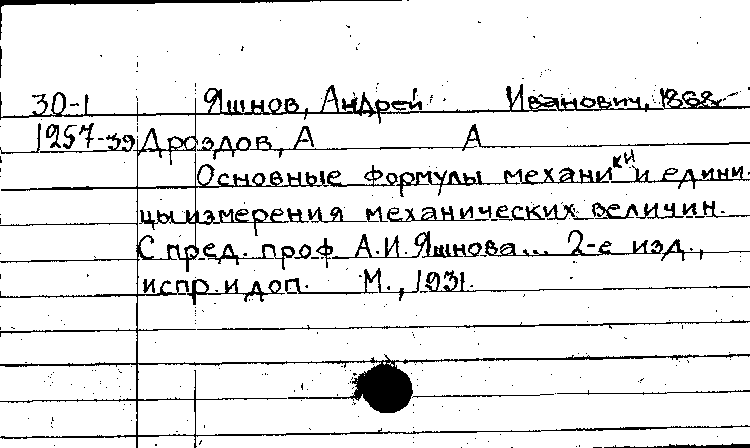 30-1 Яшнов, Андрей Иванович, 1868-
1957-39 Дроздов, А А
Основные формулы механики и едини-
цы измерения механических величин.
С пред. проф. А.И. Яшнова... 2-е изд.,
испр. и доп. М., 1931.